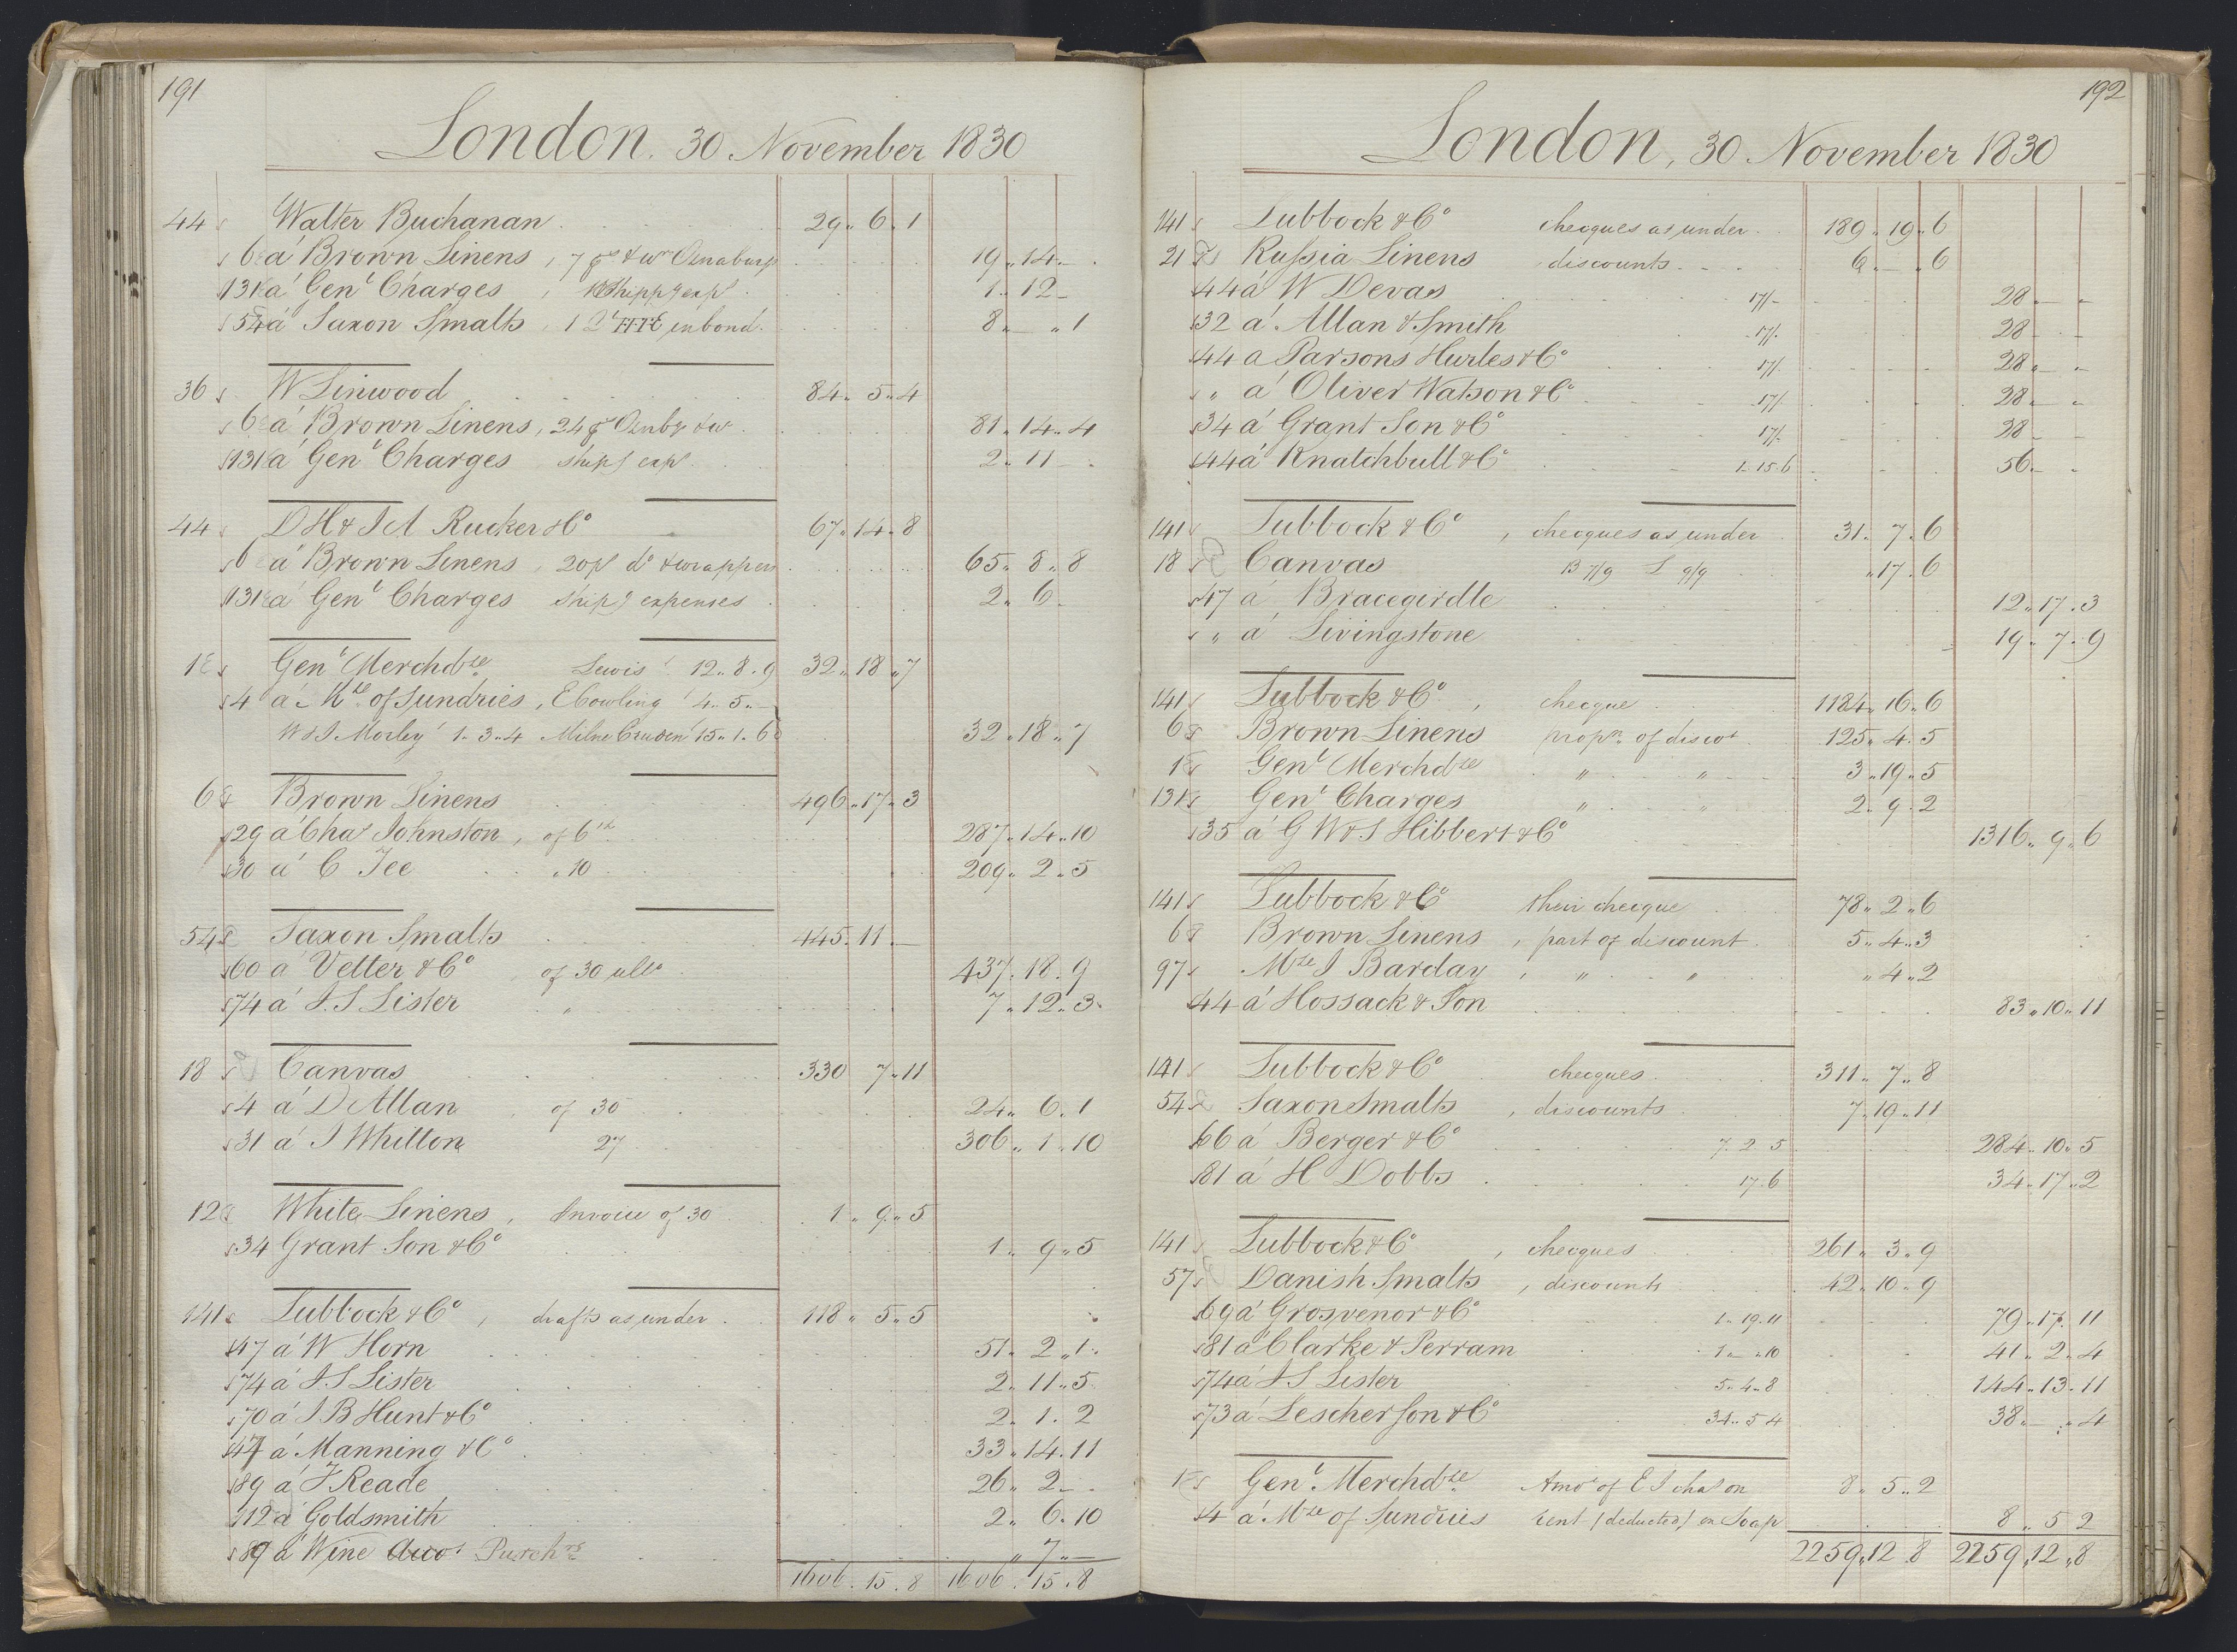 191
London. 30 November 1830
44 Walter Buchanan 29 " 6 " 1
6 á Brown Linens, 7 ps & wr Osnaburg 19 " 14 " –
131 á Genl Charges, Shippg exps 1 " 12 –
54 á Saxon Smalts, 1 in bond 8 " – " 1
36 W Linwood 84 " 5 " 4
6 á Brown Linens, 24 ps Osnbg & wr 81 " 14 " 4
131 á Genl Charges shipg exps 2 " 11 –
44 D H & J A Rucker & Co 67 " 14 " 8
6 á Brown Linens, 20 ps do & wrappers 65 " 8 " 8
131 á Genl Charges shipg expenses 2 " 6 –
1 Genl Merchdze Lewis 12 " 8 " 9 32 " 18 " 7
4 á Mze of Sundries, E Cowling 4 " 5 " –
W & J Morley 1 " 3 " 4 Milne Cruden 15 " 1 " 6 32 " 18 " 7
6 Brown Linens 496 " 17 " 3
29 á Chas Johnston, of 6th 287 " 14 " 10
30 á C Tee " 10 209 " 2 " 5
54 Saxon Smalts 445 " 11 " –
60 á Vetter & Co of 30 ulto 437 " 18 " 9
74 á J S Lister " 7 " 12 " 3
18 Canvas 330 7 " 11
4 á D Allan of 30 24 " 6 " 1
31 á J Whitton 27 306 " 1 " 10
12 White Linens, Invoice of 30 1 " 9 " 5
34 Grant Son & Co 1 " 9 " 5
141 Lubbock & Co, drafts as under 118 " 5 " 5
47 á W Horn 51 " 2 " 1
74 á J S Lister 2 " 11 " 5
70 á J B Hunt & Co 2 " 1 " 2
47 á Manning & Co 33 " 14 " 11
89 á J Reade 26 " 2 " –
112 á Goldsmith 2 " 6 " 10
89 á Wine Acco Purchrs " 7 " –
1606 " 15 " 8 1606 " 15 " 8
192
London, 30 November 1830
141 Lubbock & Co checques as under 189 " 19 " 6
21 Russia Linens discounts 6 " – " 6
44 á W Devas 17/- 28 – –
32 á Allan & Smith 17/- 28 – –
44 a Parsons Hurles & Co 17/- 28 " – "
" á Oliver Watson & Co 17/- 28 " – "
34 á Grant Son & Co 17/- 28 – –
44 á Knatchbull & Co 1 " 15 " 6 56 – "
141 Lubbock & Co, checques as under 31 " 7 " 6
18 Canvas B 7/9 L 9/9 " 17 " 6
47 á Bracegirdle 12 " 17 " 3
" á Livingstone 19 " 7 " 9
141 Lubbock & Co, checque 1184 " 16 " 6
6 Brown Linens propn of discot 125 " 4 " 5
1 Genl Merchdze " " 3 " 19 " 5
131 Genl Charges " " 2 " 9 " 2
35 á G W & S Hibbert & Co 1316 " 9 " 6
141 Lubbock & Co their checque 78 " 2 " 6
6 Brown Linens, part of discount 5 " 4 " 3
97 Mze J Barclay, " " " 4 " 2
44 á Hossack & Son 83 " 10 " 11
141 Lubbock & Co checques 311 " 7 " 8
54 Saxon Smalts, discounts 7 " 19 " 11
66 á Berger & Co 7 " 2 " 5 284 " 10 " 5
81 á H Dobbs 17 " 6 34 " 17 " 2
141 Lubbock & Co, checques 261 " 3 " 9
57 Danish Smalts, discounts 42 " 10 " 9
69 á Grosvenor & Co 1 " 19 " 11 79 " 17 " 11
81 á Clarke & Perram 1 " – " 10 41 " 2 " 4
74 á J S Lister 5 " 4 " 8 144 " 13 " 11
73 á Lescher Son & Co 34 " 5 4 38 " – " 4
1 Genl Merchdze Amot of E I chas on 8 " 5 " 2
4 á Mze of Sundries rent (deducted) on Soap 8 " 5 2
2259 " 12 8 2259 " 12 " 8